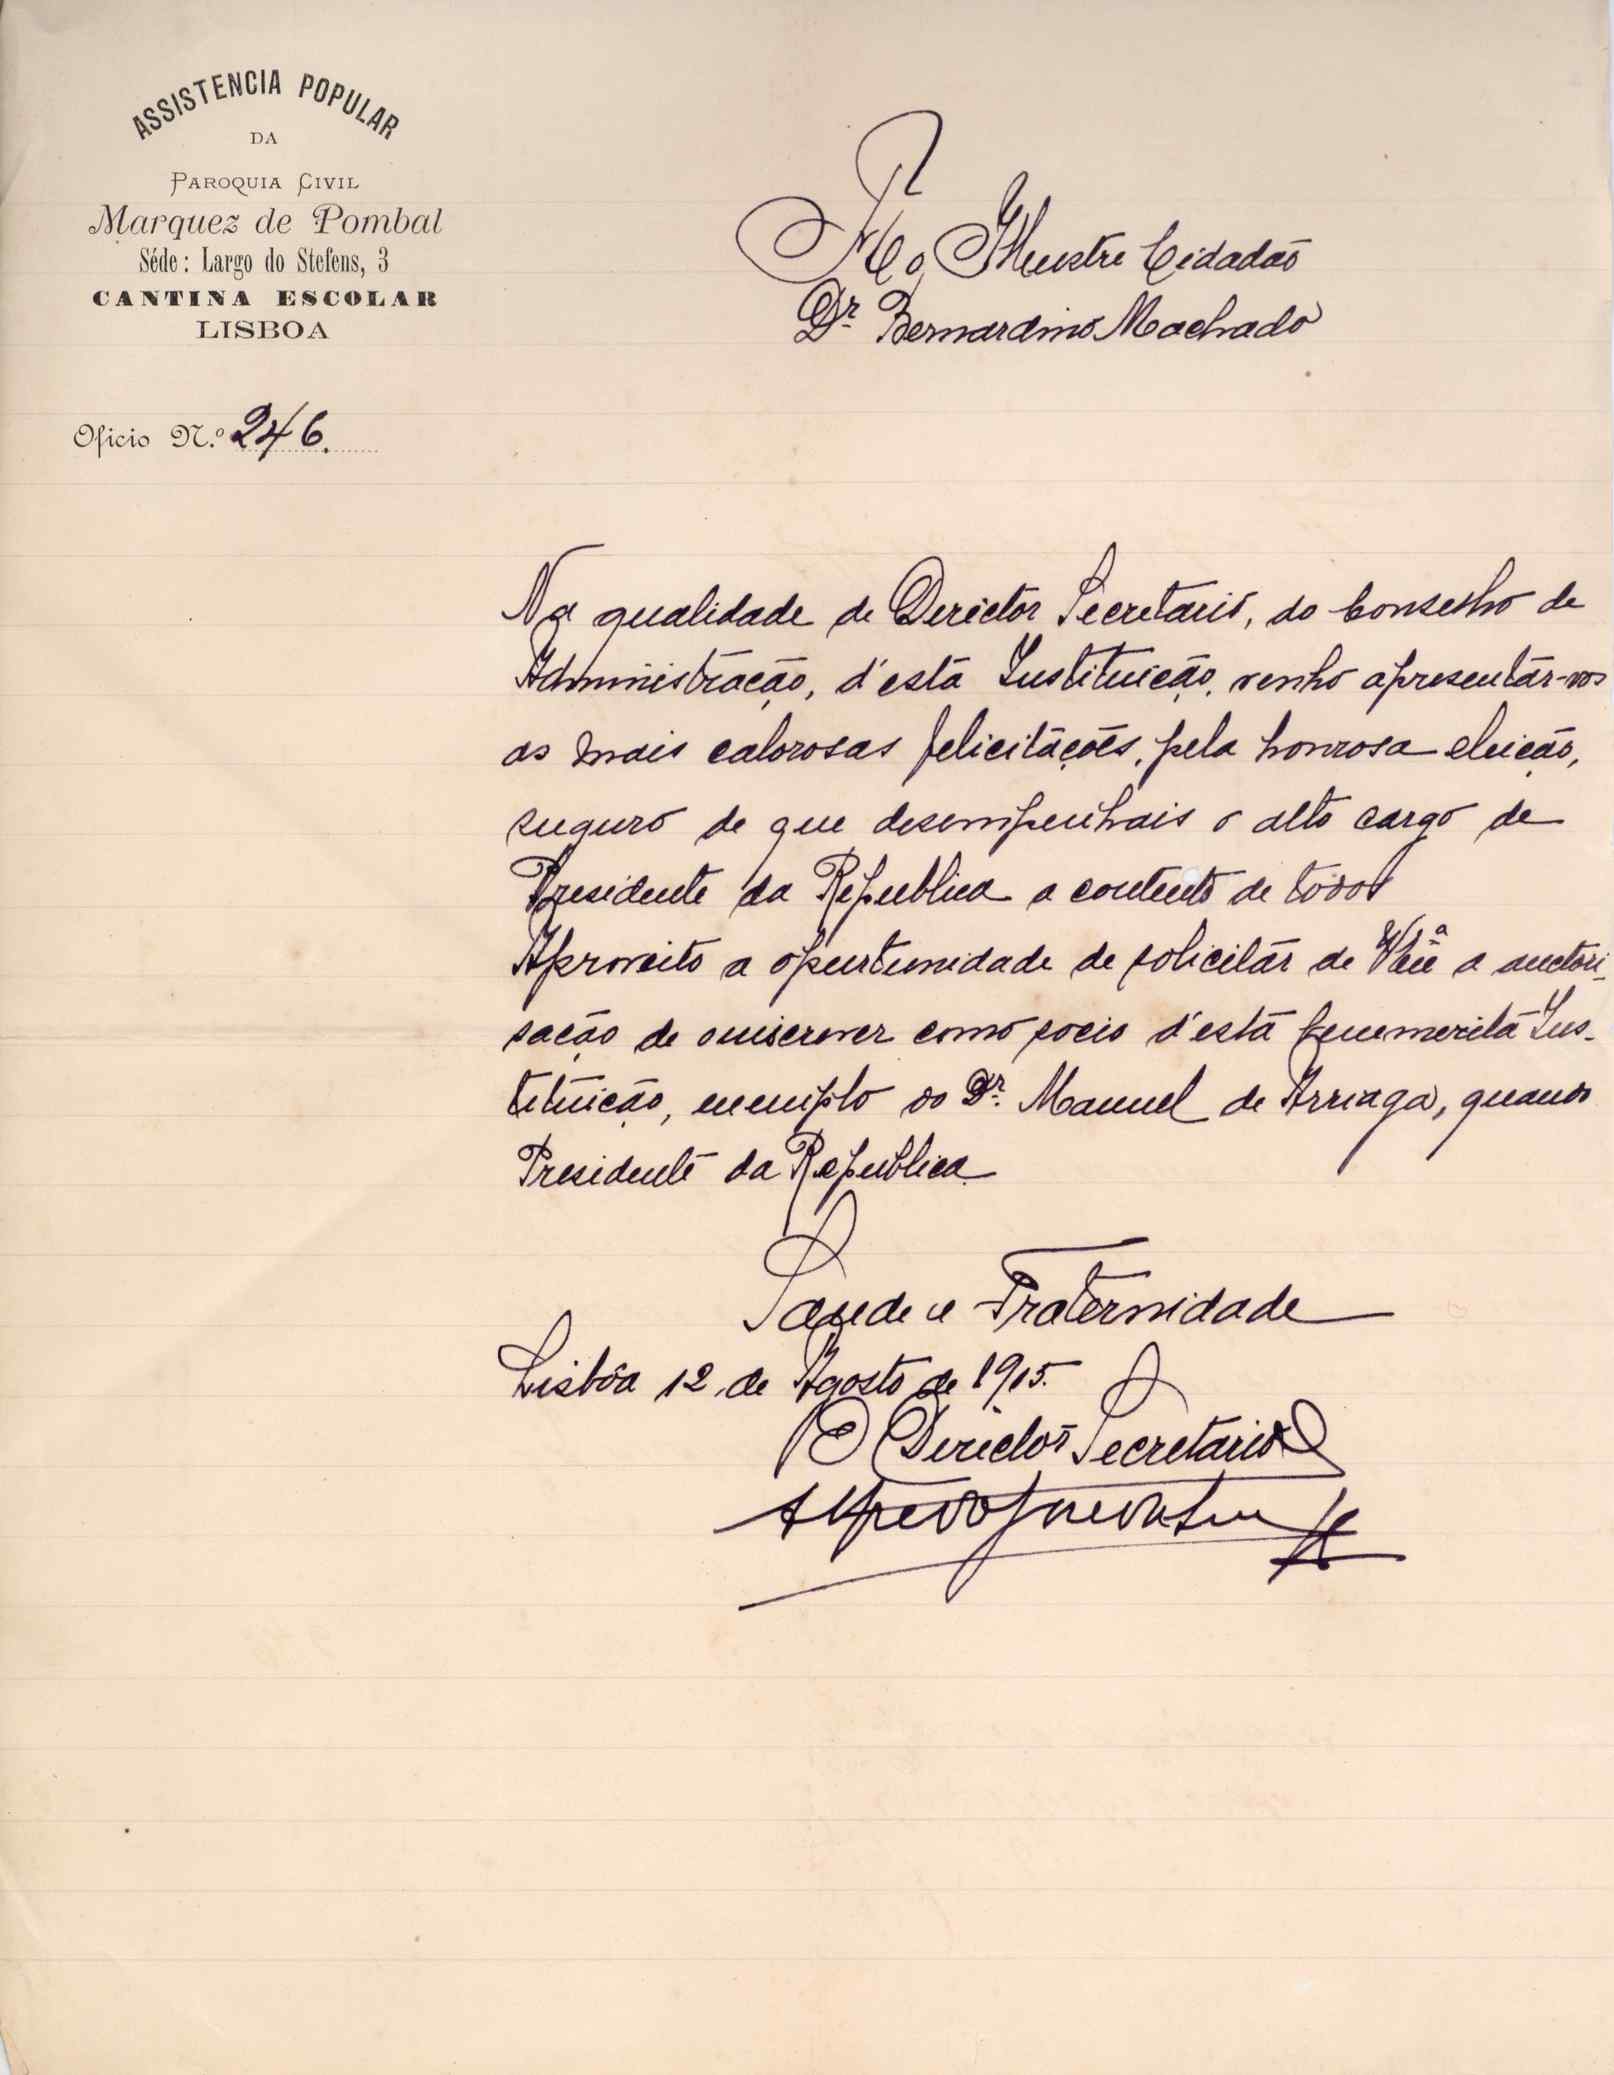 ASSISTENCIA POPULAR
DA
PAROQUIA CIVIL
Marquez de Pombal
Séde: Largo do Stefens, 3
CANTINA ESCOLAR
LISBOA
Oficio N.º 246.
Illustre Cidadão
Dr. Bernardino Machado
Na qualidade de Deréctor Secretario, do Conselho de
Administração, d'esta Instituição, venho apresentar-vos
as mais calorosas felicitações, pela honrosa eleição,
suguro de que desempenhais o alto cargo de
Presidente da Republica a contento de todos
Aproveito a opurtunidade de solicitar de V Exª a auctori-
sação de o inscrever como socio d'esta benemerita Ins-
tituição, exemplo do Dr. Manuel de Arriaga, quando
Presidente da Republica
Saude e Fraternidade
Lisbôa 12 de Agosto de 1915.
O Deréctor Secretario
Alfredo